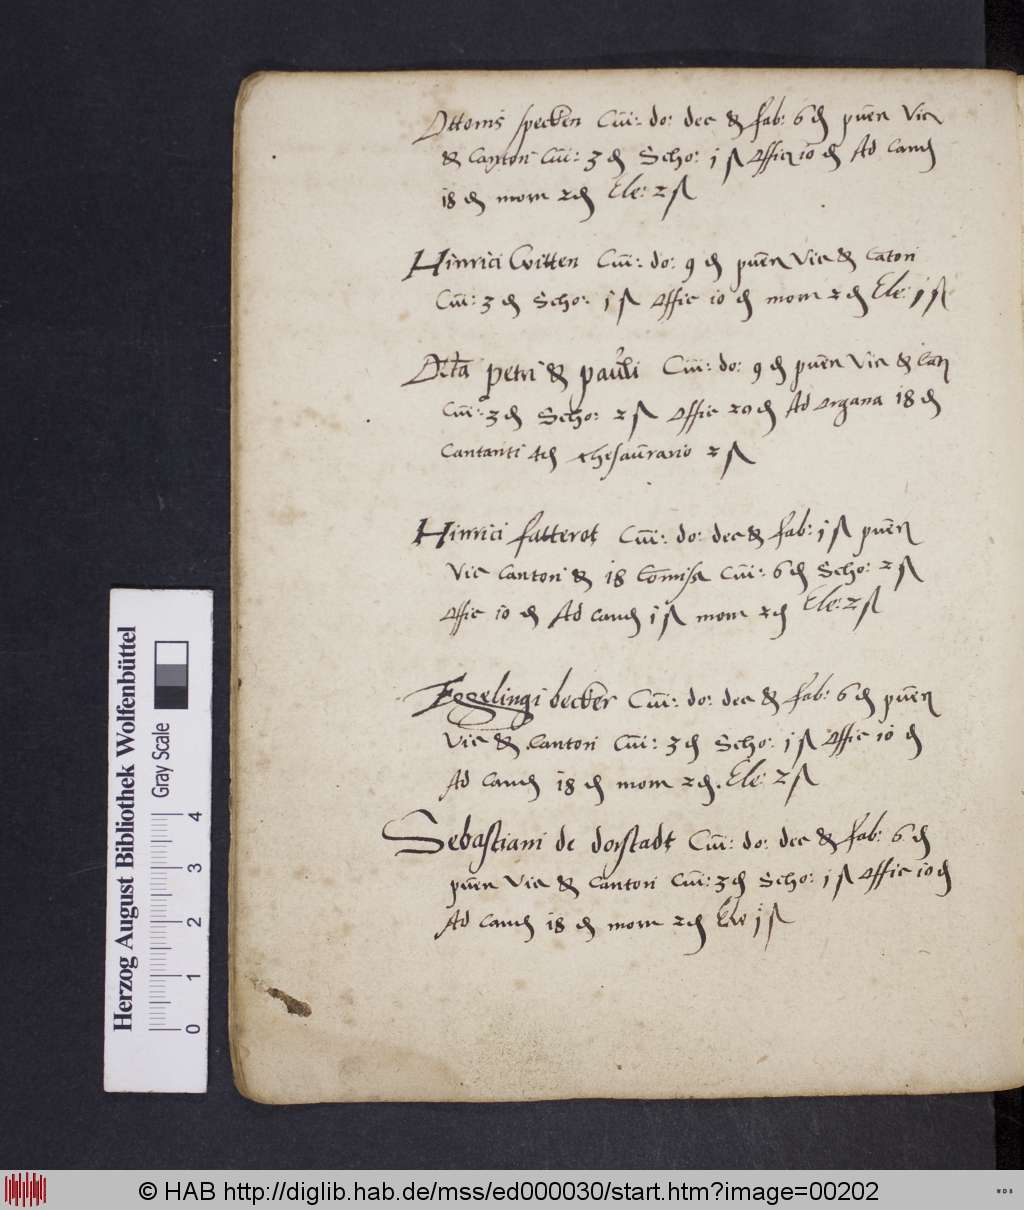 Ottonis specken Cui: do: dec & fab: 6 ₰ puen Vic
& Cantori Cui: 3 ₰ Scho: 1 ß Offic 10 ₰ Ad Cand
18 ₰ mom 2 ₰ Ele: 2 ß
Hinrici Witten Cui: do: 9 ₰ puen Vic & Catori
Cui: 3 ₰ Scho: 1 ß Offic 10 ₰ mom 2 ₰ Ele: 1 ß
petri & pauli Cui: do: 9 ₰ puen Vic & Can
Cui: 3 ₰ Scho: 2 ß Offic 20 ₰ Ad organa 18 ₰
Cantanti 4 ₰ thesaurario 2 ß
Hinrici fatterot Cui: do: dec & fab: 1 ß puen
Vic Cantori & 18 Comissa Cui: 6 ₰ Scho: 2 ß
Offic 10 ₰ Ad Cand 1 ß mom 2 ₰ Ele: 2 ß
Eggelingi becker Cui: do: dec & fab: 6 ₰ puen
Vic & Cantori Cui: 3 ₰ Scho: 1 ß Offic 10 ₰
Ad Cand 18 ₰ mom 2 ₰. Ele: 2 ß
Sebastiani de dorstadt Cui: do: dec & fab: 6 ₰
puen Vic & Cantori Cui: 3 ₰ Scho: 1 ß Offic 10 ₰
Ad Cand 18 ₰ mom 2 ₰ Ele 1 ß
Herzog August Bibliothek Wolfenbüttel
Gray Scale
0 1 2 3 4
© HAB http://diglib.hab.de/mss/ed000030/start.htm?image=00202